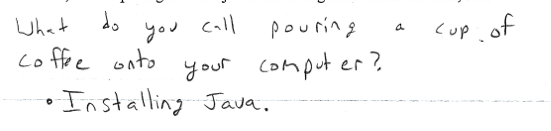 What do you call pouring a cup of
coffee onto your computer?
• Installing Java.